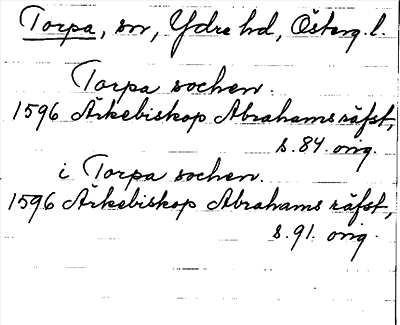 Torpa, sn, Ydre hd, Österg. l.
Torpa sochen.
1596 Ärkebiskop Abrahams räfst,
s. 84. orig.
i Torpa sochen.
1596 Ärkebiskop Abrahams räfst,
s. 91. orig.